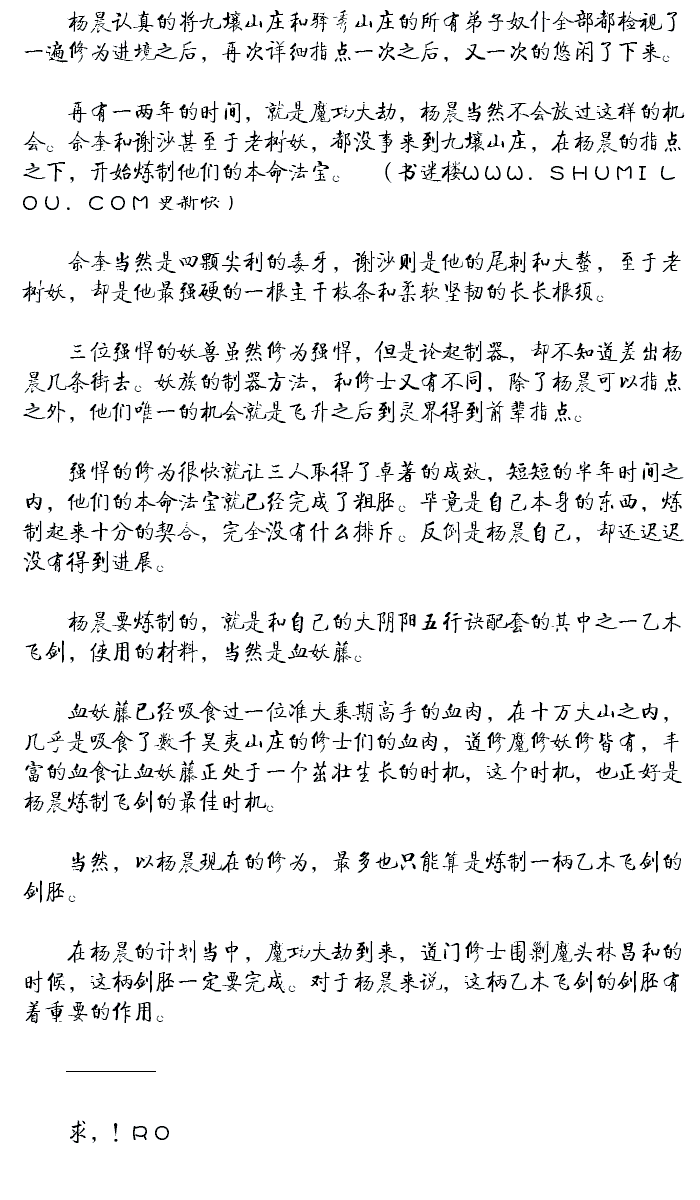 杨晨认真的将九壤山庄和驿秀山庄的所有弟子奴仆全部都检视了
一遍修为进境之后，再次详细指点一次之后，又一次的悠闲了下来。
再有一两年的时间，就是魔功大劫，杨晨当然不会放过这样的机
会。佘奎和谢沙甚至于老树妖，都没事来到九壤山庄，在杨晨的指点
之下，开始炼制他们的本命法宝。 （书迷楼WWW．SHUMIL
OU．COM更新快）
佘奎当然是四颗尖利的毒牙，谢沙则是他的尾刺和大螯，至于老
树妖，却是他最强硬的一根主干枝条和柔软坚韧的长长根须。
三位强悍的妖兽虽然修为强悍，但是论起制器，却不知道差出杨
晨几条街去。妖族的制器方法，和修士又有不同，除了杨晨可以指点
之外，他们唯一的机会就是飞升之后到灵界得到前辈指点。
强悍的修为很快就让三人取得了卓著的成效，短短的半年时间之
内，他们的本命法宝就已经完成了粗胚。毕竟是自己本身的东西，炼
制起来十分的契合，完全没有什么排斥。反倒是杨晨自己，却还迟迟
没有得到进展。
杨晨要炼制的，就是和自己的大阴阳五行诀配套的其中之一乙木
飞剑，使用的材料，当然是血妖藤。
血妖藤已经吸食过一位准大乘期高手的血肉，在十万大山之内，
几乎是吸食了数千昊夷山庄的修士们的血肉，道修魔修妖修皆有，丰
富的血食让血妖藤正处于一个茁壮生长的时机，这个时机，也正好是
杨晨炼制飞剑的最佳时机。
当然，以杨晨现在的修为，最多也只能算是炼制一柄乙木飞剑的
剑胚。
在杨晨的计划当中，魔功大劫到来，道门修士围剿魔头林昌和的
时候，这柄剑胚一定要完成。对于杨晨来说，这柄乙木飞剑的剑胚有
着重要的作用。
———
求，！RO